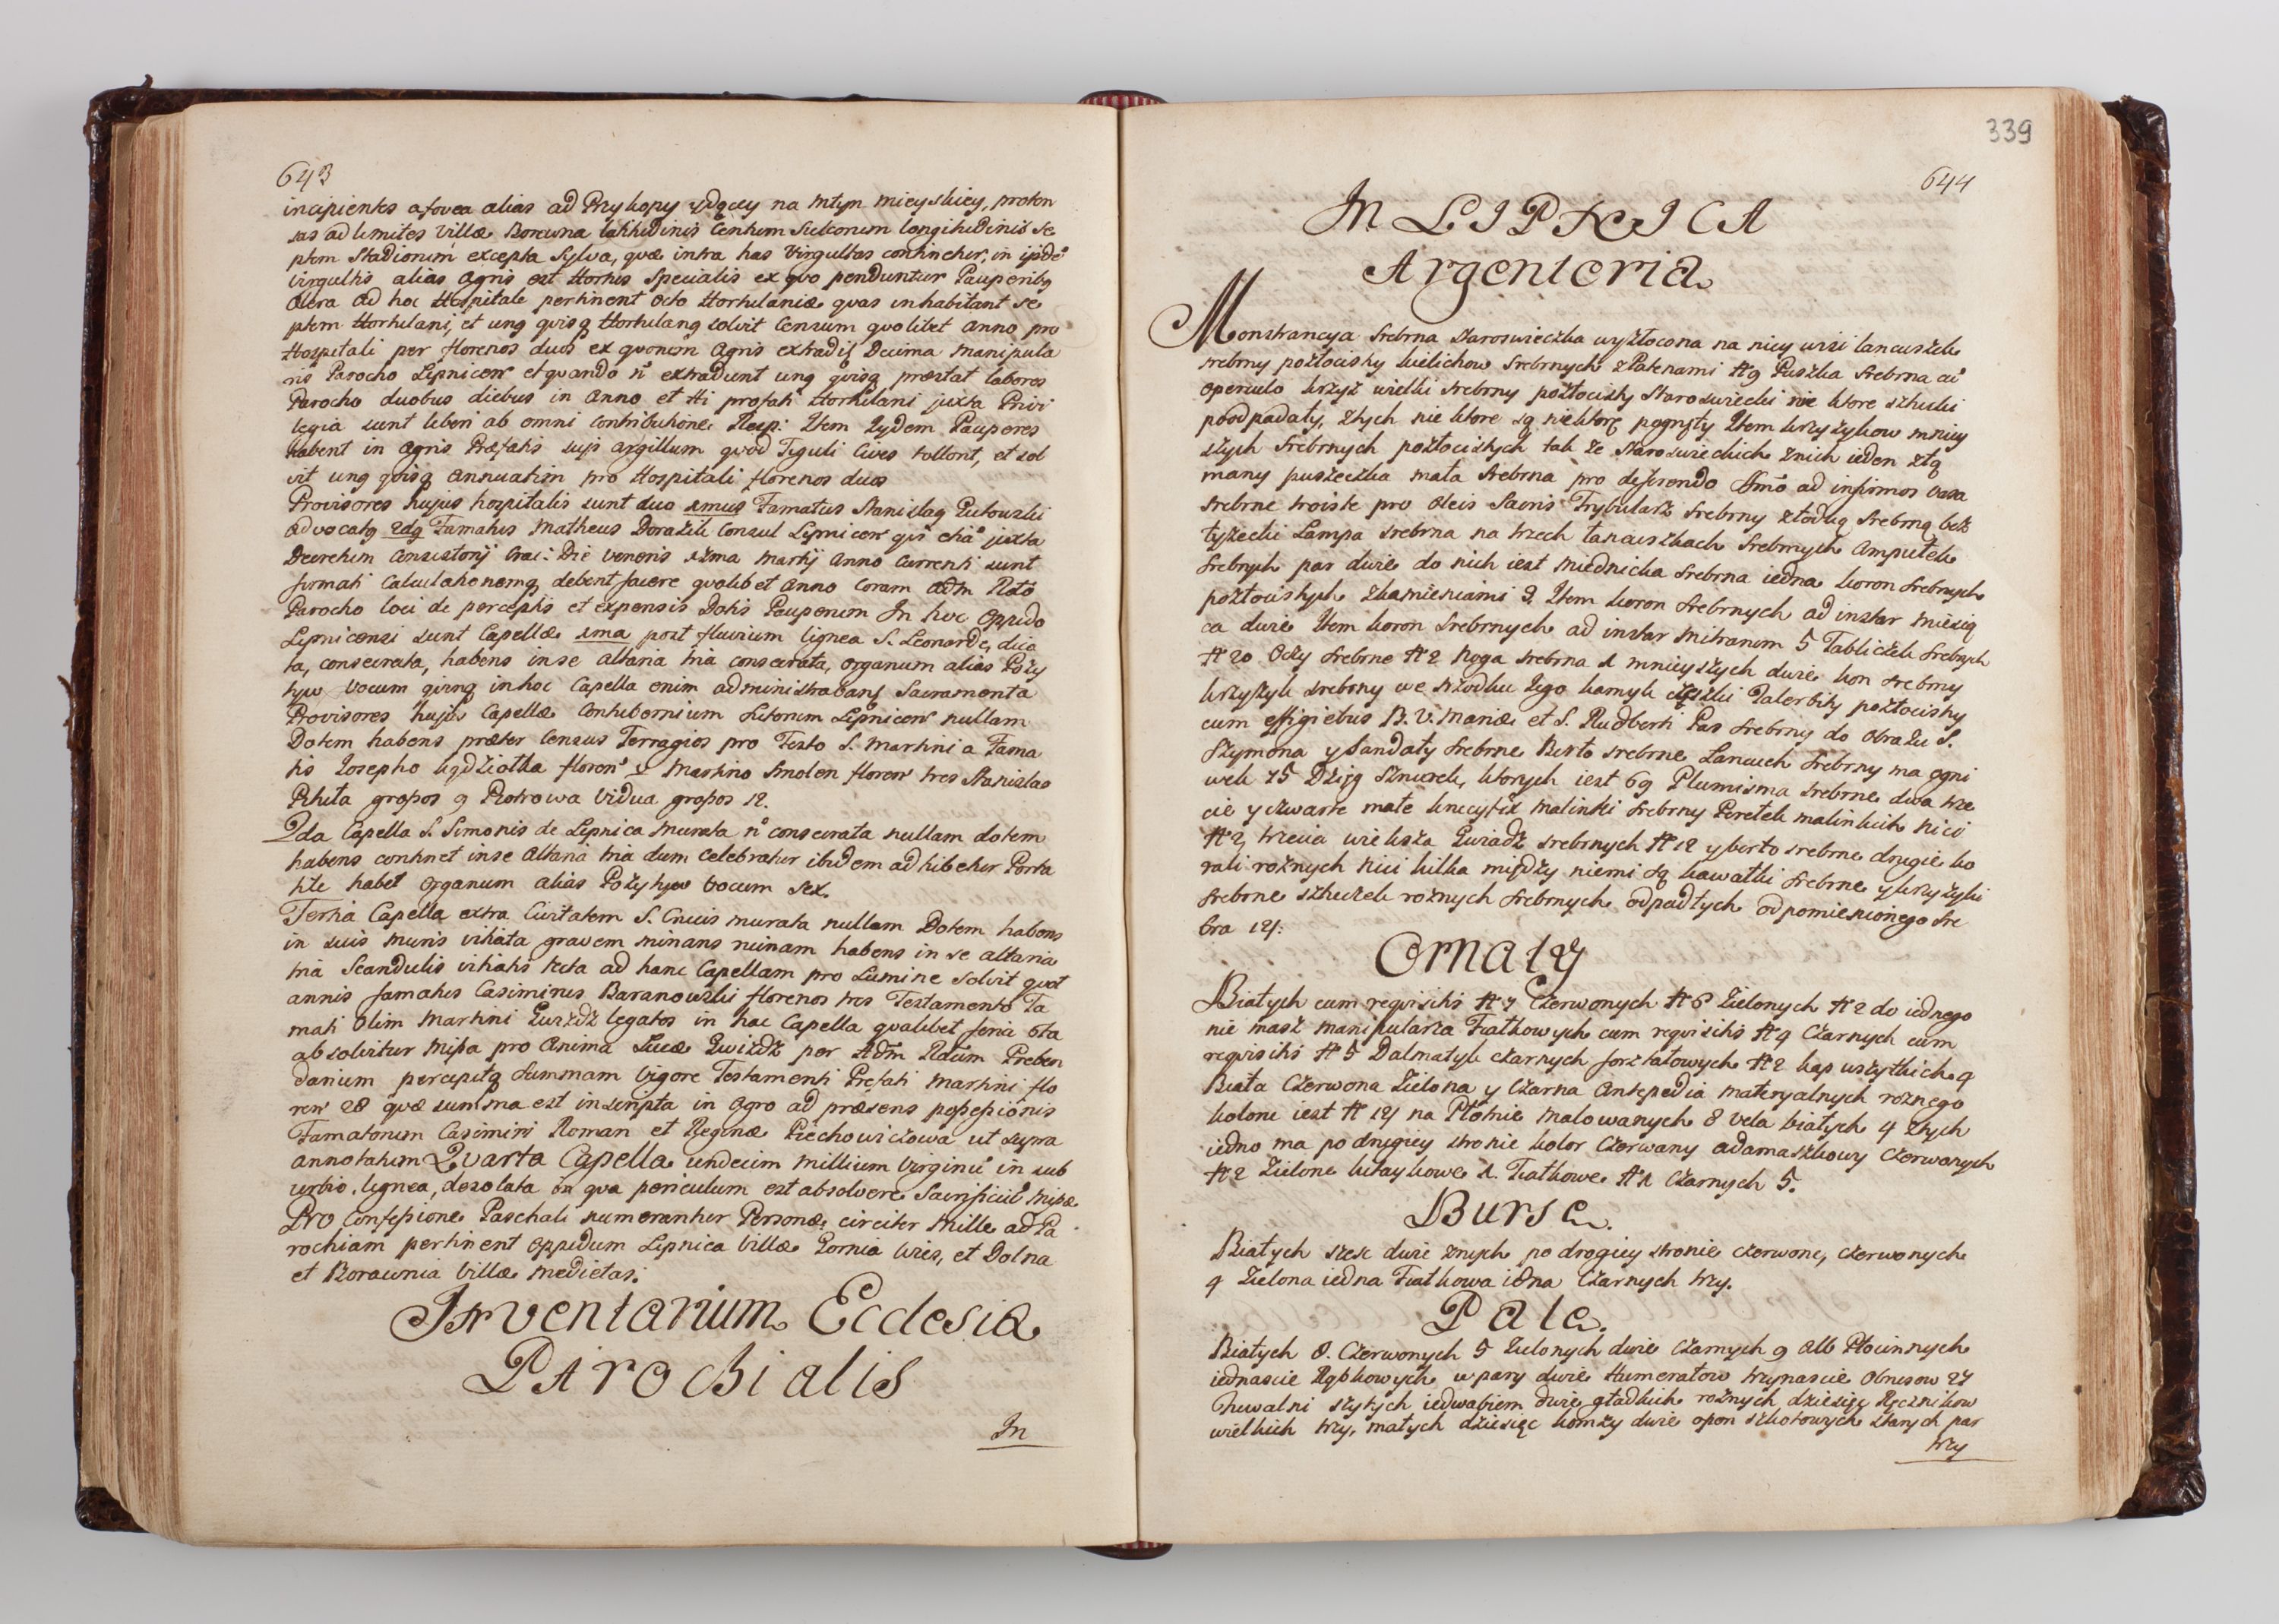 643
incipientes a fovea alias ad Przykopy ydącey na młyn mieyskiey, proten
sas ad limites Villæ Borowna latitudinis Centum Sulcorum longitudinis se
ptem Stadiorum excepta Sylva, quæ intra has Virgultas continetur, in ijsdē
Virgultis alias Agris est Hortus Specialis ex quo penduntur Pauperibq
Olera Ad hoc Hospitale pertinent Octo Hortulaniæ quas inhabitant se
ptem Hortulani, et unq quisq Hortulanq solvit Censum quolibet Anno pro
Hospitali per florenos duos ex quorum Agris extradit Decima Manipula
ris Parocho Lipnicen et quando n̄ extradunt unq quisq præstat labores
Parocho duobus diebus in Anno et Hi profati Hortulani juxta Privi
legia sunt liberi ab omni Contributione Reip: Item Iydem Pauperes
habent in Agris Præfatis suis argillum quod Figuli Cives tollont, et sol
vit unq quisq Annuatim pro Hospitali florenos duos
Provisores hujus hospitalis sunt duo 1mus Famatus Stanislaq Putowski
Advocatq 2dq Famatus Matheus Doraźil Consul Lipnicen qui etiā juxta
Decretum Consistorij Crac: Die Veneris 1ma Martij Anno Currenti sunt
firmati Calculationemq debent facere quolibet Anno Coram Adm Rndo
Parocho loci de perceptis et expensis Dotis Pauperum In hoc Oppido
Lipnicensi sunt Capellæ 1ma post fluvium lignea S. Leonardi, dica
ta, consecrata, habens in se Altaria tria consecrata, Organum alias Pozy
tyw Vocum in hoc Capella enim administrabant Sacramenta
Provisores hujus Capellæ Contubernium Sutorum Lipnicen nullam
Dotem habens præter Census Terragios pro Festo S. Martini a Fama
tis Josepho Kądziołka floren Martino Smolen floren tres Stanislao
Piheta grossos 9 Piotrowa Vidua grossos 12.
2da Capella S. Simonis de Lipnica Murata n̄ consecrata nullam dotem
habens continet in se Altaria tria dum Celebratur ibidem adhibetur Porta
tile habet Organum alias Pozytyw Vocum Sex.
Tertia Capella extra Civitatem S. Crucis Murata nullam Dotem habens
in suis Muris vitiata gravem minans ruinam habens in se altaria
tria Scandulis vitiatis tecta ad hanc Capellam pro Lumine Solvit quot
annis famatus Casimirus Baranowski florenos tres Testamento Fa
mati Olim Martini Gwiżdż legatos in hac Capella qualibet feria 6ta
absolvitur Missa pro Anima Lucæ Gwiżdż per Adm Rdum Preben
darium percepta Summam Vigore Testamenti Prefati Martini flo
ren 28 quæ summa est inscripta in Agro ad præsens possessionis
Famatorum Casimiri Roman et Reginæ Piechowiczowa ut supra
annotatum Quarta Capella undecim Millium Virginū in sub
urbio, lignea, desolata in qua periculum est absolvere Sacrificiū Missæ
Pro Confessione Paschali numerantur Personæ circiter Mille ad Pa
rochiam pertinent Oppidum Lipnica Villæ Gornia Wies, et Dolna
et Borawnia Villæ Medietas.
Inventarium Ecclesiæ
Parochialis
In
339
644
In LIPNICA
Argenteria
Monstrancya Srebrna Staroswiecka wyzłocona na niey wisi lancuszek
srebrny pozłocisty kielichow Srebrnych z Patenami N 9 Puszka Srebrna cū
operculo krzyż wielki Srebrny pozłocisty Staroswiecki nie ktore sztuki
poodpadały, ztych nie ktore są niektore pognęty Item krzyżykow mniey
szych Srebrnych pozłocistych tak że Staroswieckich znich ieden złą
many puszeczka mała Srebrna pro deferendo Ssmo ad infirmos Vasa
Srebrne troiste pro Oleis Sacris Trybularz Srebrny złodką Srebrną bez
łyżecki Lampa srebrna na trzech łancuszkach Srebrnych Ampułek
Srebrnych par dwie do nich iest Miednicka Srebrna iedna koron Srebrnych
pozłocistych zkamieniami 3. Item koron Srebrnych ad instar Miesią
ca dwie Item koron Srebrnych ad instar Mitrarum 5 Tabliczek Srebrnych
N 20. Oczy Srebrne N 2 Noga Srebrna 1 mnieyszych dwie kon Srebrny
krzyzyk srebrny we szrodku Jego kamyk czeski Paterbity pozłocisty
cum effigiebus B. V. Mariæ et S. Rudberti Pas Srebrny do Obrazu S.
Szymona y Sandały Srebrne Berło srebrne Lancuch Srebrny ma ogni
wek 75 Dzięg Sznurek, ktorych iest 69 Plumisma srebrne dwa trze
cie y czwarte małe krucyfix Malinki Srebrny Peretek malinkich Nici
N 2, trzecia wieksza Gwiazdz srebrnych N 12 y berło srebrne drugie ko
rali rożnych Nici kilka między niemi są kawałki Srebrne y krzyżyki
Srebrne sztuczek rożnych Srebrnych odpadłych od pomienionego Sre
bra 12.
Ornaty
Białych cum requisitis N 7 Czerwonych N 6 Zielonych N 2 do iednego
nie masz manipularza Fiałkowych cum requisitis N 4 Czarnych cum
requisitis N 5 Dalmatyk czarnych forsztatowych N 2 kap wszytkich 4
Biała Czerwona Zielona y Czarna Antepedia materyalnych rożnego
koloru iest N 12 na Płotnie malowanych 8 Vela białych 4 ztych
iedno ma po drugiey stronie kolor Czerwany adamaszkowy Czerwonych
N 2 Zielone kitaykowe 1. Fiałkowe N 1 Czarnych 5.
Burse.
Białych szesc dwie znych po drugiey stronie czerwone, czerwonych
4 Zielona iedna Fiałkowa iedna Czarnych trzy.
Pale.
Białych 8. Czerwonych 5 Zielonych dwie Czarnych 9 Alb Płocinnych
iednascie Rąbkowych w pary dwie Humerałow trzynascie Obrusow 27
Tuwalni szytych iedwabiem dwie gładkich rożnych dziesięc Ręcznikow
wielkich trzy, małych dziesięc komży dwie opon szkotowych starych par
trzy